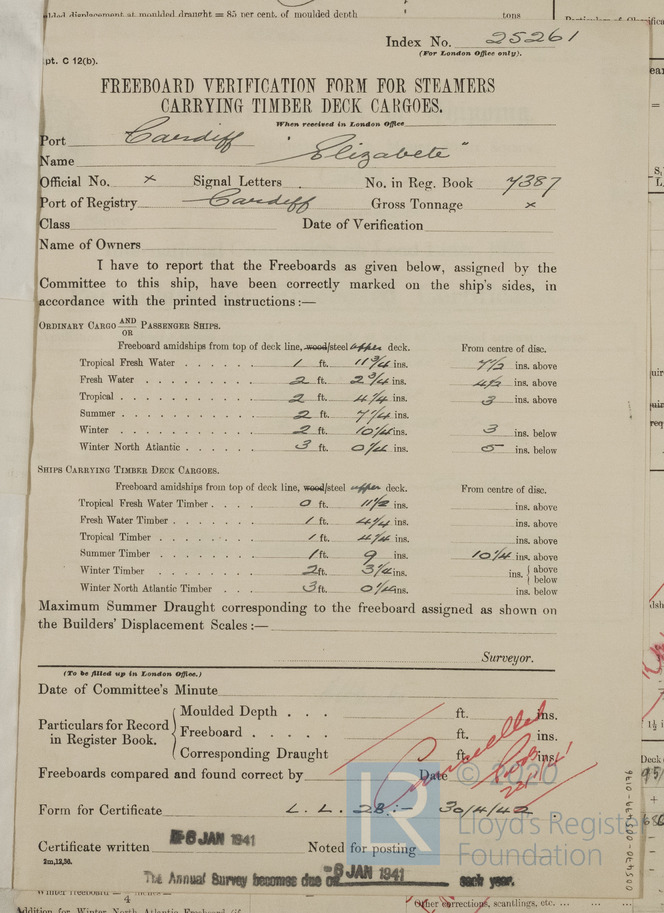 ulded displacement at moulded draught = 85 per cent. of moulded depth tons
Index No. 25261
(For London Office only).
pt. C 12(b).
FREEBOARD VERIFICATION FORM FOR STEAMERS
CARRYING TIMBER DECK CARGOES.
When received in London Office
Port Cardiff
Name "Elizabete"
Official No. × Signal Letters . No. in Reg. Book 7387
Port of Registry Cardiff Gross Tonnage ×
Class Date of Verification
Name of Owners
I have to report that the Freeboards as given below, assigned by the
Committee to this ship, have been correctly marked on the ship's sides, in
accordance with the printed instructions:—
ORDINARY CARGO AND/OR PASSENGER SHIPS.
Freeboard amidships from top of deck line, wood/steel upper deck. From centre of disc.
Tropical Fresh Water 1 ft. 11 3/4 ins. 7 1/2 ins. above
Fresh Water 2 ft. 2 3/4 ins. 4 1/2 ins. above
Tropical 2 ft. 4 1/4 ins. 3 ins. above
Summer 2 ft. 7 1/4 ins.
Winter 2 ft. 10 1/4 ins. 3 ins. below
Winter North Atlantic 3 ft. 0 1/4 ins. 5 ins. below
SHIPS CARRYING TIMBER DECK CARGOES.
Freeboard amidships from top of deck line, wood/steel upper deck. From centre of disc.
Tropical Fresh Water Timber 0 ft. 11 1/2 ins. ins. above
Fresh Water Timber 1 ft. 4 1/4 ins. ins. above
Tropical Timber 1 ft. 4 3/4 ins. ins. above
Summer Timber 1 ft. 9 ins. 10 1/4 ins. above
Winter Timber 2 ft. 3 1/4 ins. ins. { above
below
Winter North Atlantic Timber 3 ft. 0 1/4 ins. ins. below
Maximum Summer Draught corresponding to the freeboard assigned as shown on
the Builders' Displacement Scales:—
Surveyor.
(To be filled up in London Office.)
Date of Committee's Minute
Particulars for Record in Register Book.
Moulded Depth . . . ft. ins.
Freeboard . . . . . ft. ins.
Corresponding Draught ft. ins.
Cancelled
Freeboards compared and found correct by Date
© 2020
Form for Certificate L. L. 2B :- 30/4/42
Lloyd's Register
Foundation
Certificate written 8 JAN 1941 Noted for posting
2m,12,38.
The Annual Survey becomes due on 8 JAN 1941 each year.
Other corrections, scantlings, etc. ...
005470-005479-0176